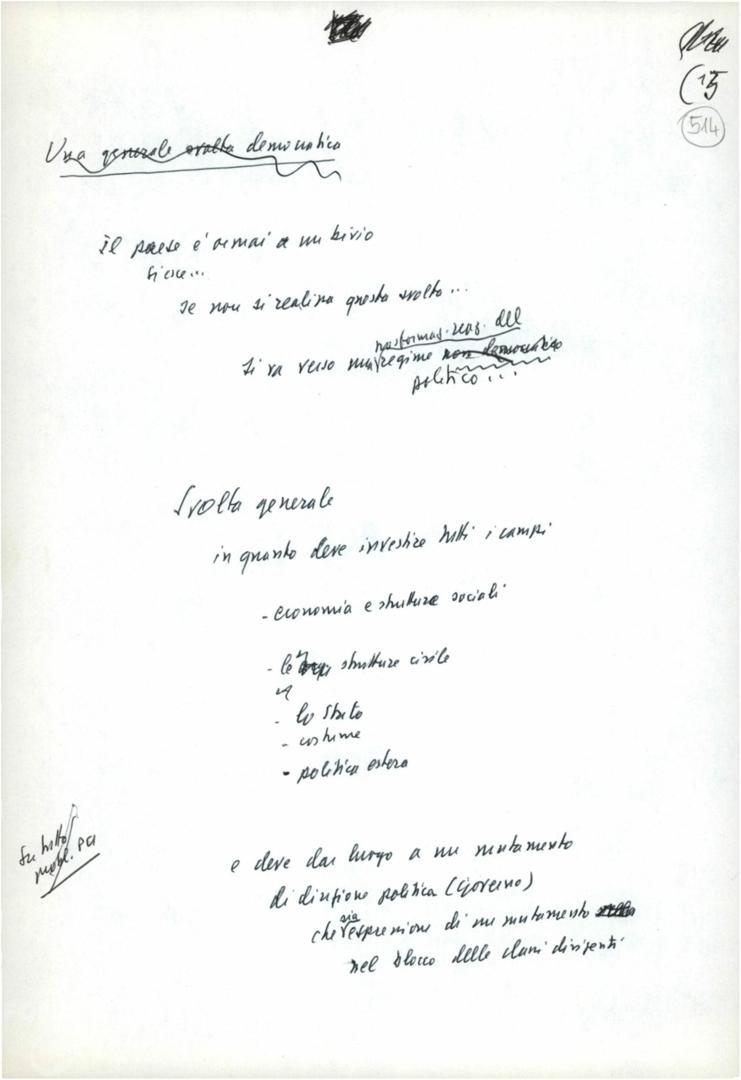 (15
514
Una generale svolta democratica
Il paese è ormai a un bivio
Se non si realizza questa svolta...
trasformaz. reaz. del
si va verso una regime non democratico
politico...
Svolta generale
in quanto deve investire tutti i campi
- economia e strutture sociali
- le strutture civile
- lo Stato
- costume
- politica estera
Su tutto
mobl. PCI
e deve dar luogo a un mutamento
di direzione politica (Governo)
sia
che espressione di un mutamento
nel blocco delle classi dirigenti